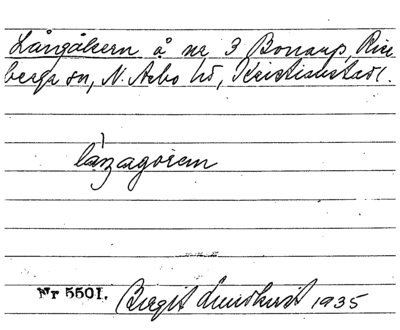 Långåkern å nr 3 Bonarp, Rise
berga sn, N. Åsbo hd, Kristianstad l.
långagoren
Nr 5501. Birgit Lundkvist 1935